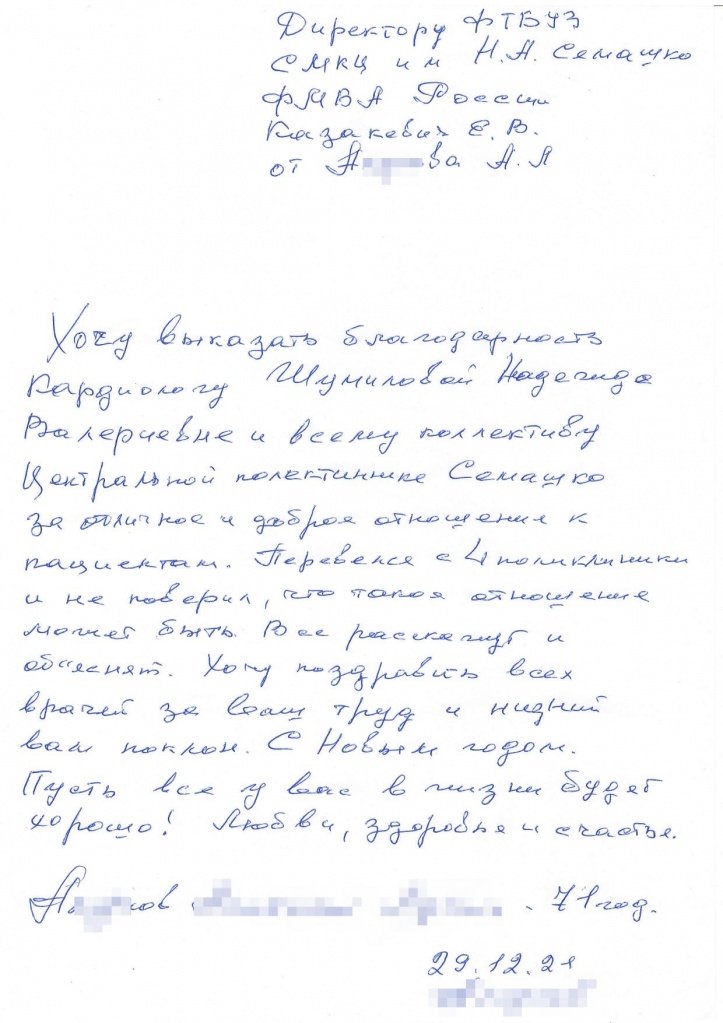 Директору ФГБУЗ
СМКЦ им Н.А. Семашко
ФМБА России
Казакевич Е.В.
от А ва А.Л
Хочу выказать благодарность
Кардиологу Шумиловой Надежида
Валериевне и всему коллективу
Центральной полектиннике Семашко
за отличное и доброя отношения к
пациектам. Перевелся с 4 поликлиники
и не поверил, что такоя отношение
может быть. Все расскажут и
обьяснят. Хочу поздравить всех
врачей за ваш труд и нидний
вам поклон. С Новым годом.
Пусть все у вас в жизни будет
хорошо! Любви, здоровья и счастья.
А ов . 71 год.
29.12.21